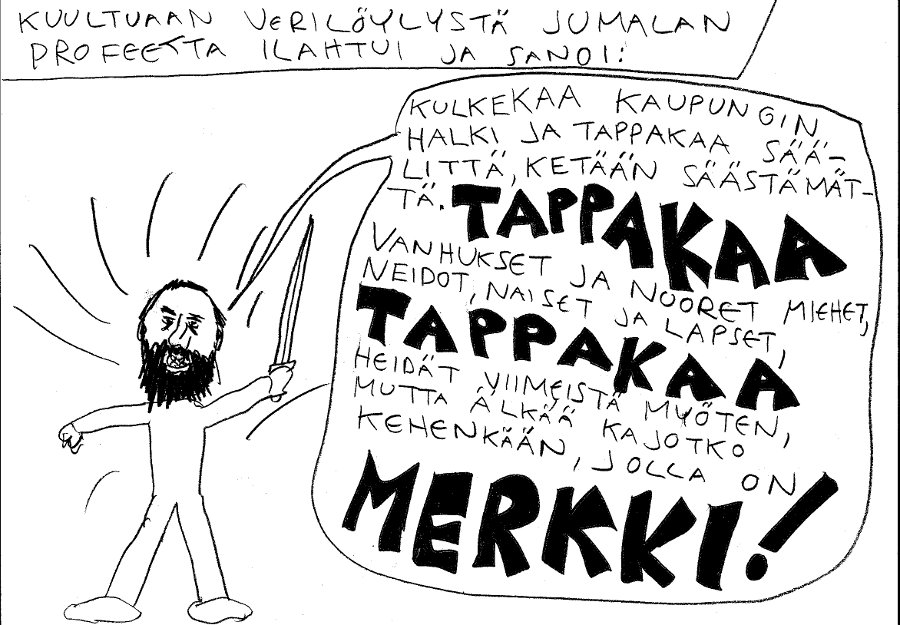 KUULTUAAN VERILÖYLYSTÄ JUMALAN
PROFEETTA ILAHTUI JA SANOI:
KULKEKAA KAUPUNGIN
HALKI JA TAPPAKAA SÄÄ-
LITTÄ, KETÄÄN SÄÄSTÄMÄT-
TÄ. TAPPAKAA
VANHUKSET JA NUORET MIEHET,
NEIDOT, NAISET JA LAPSET,
TAPPAKAA
HEIDÄT VIIMEISTÄ MYÖTEN,
MUTTA ÄLKÄÄ KAJOTKO
KEHENKÄÄN, JOLLA ON
MERKKI!